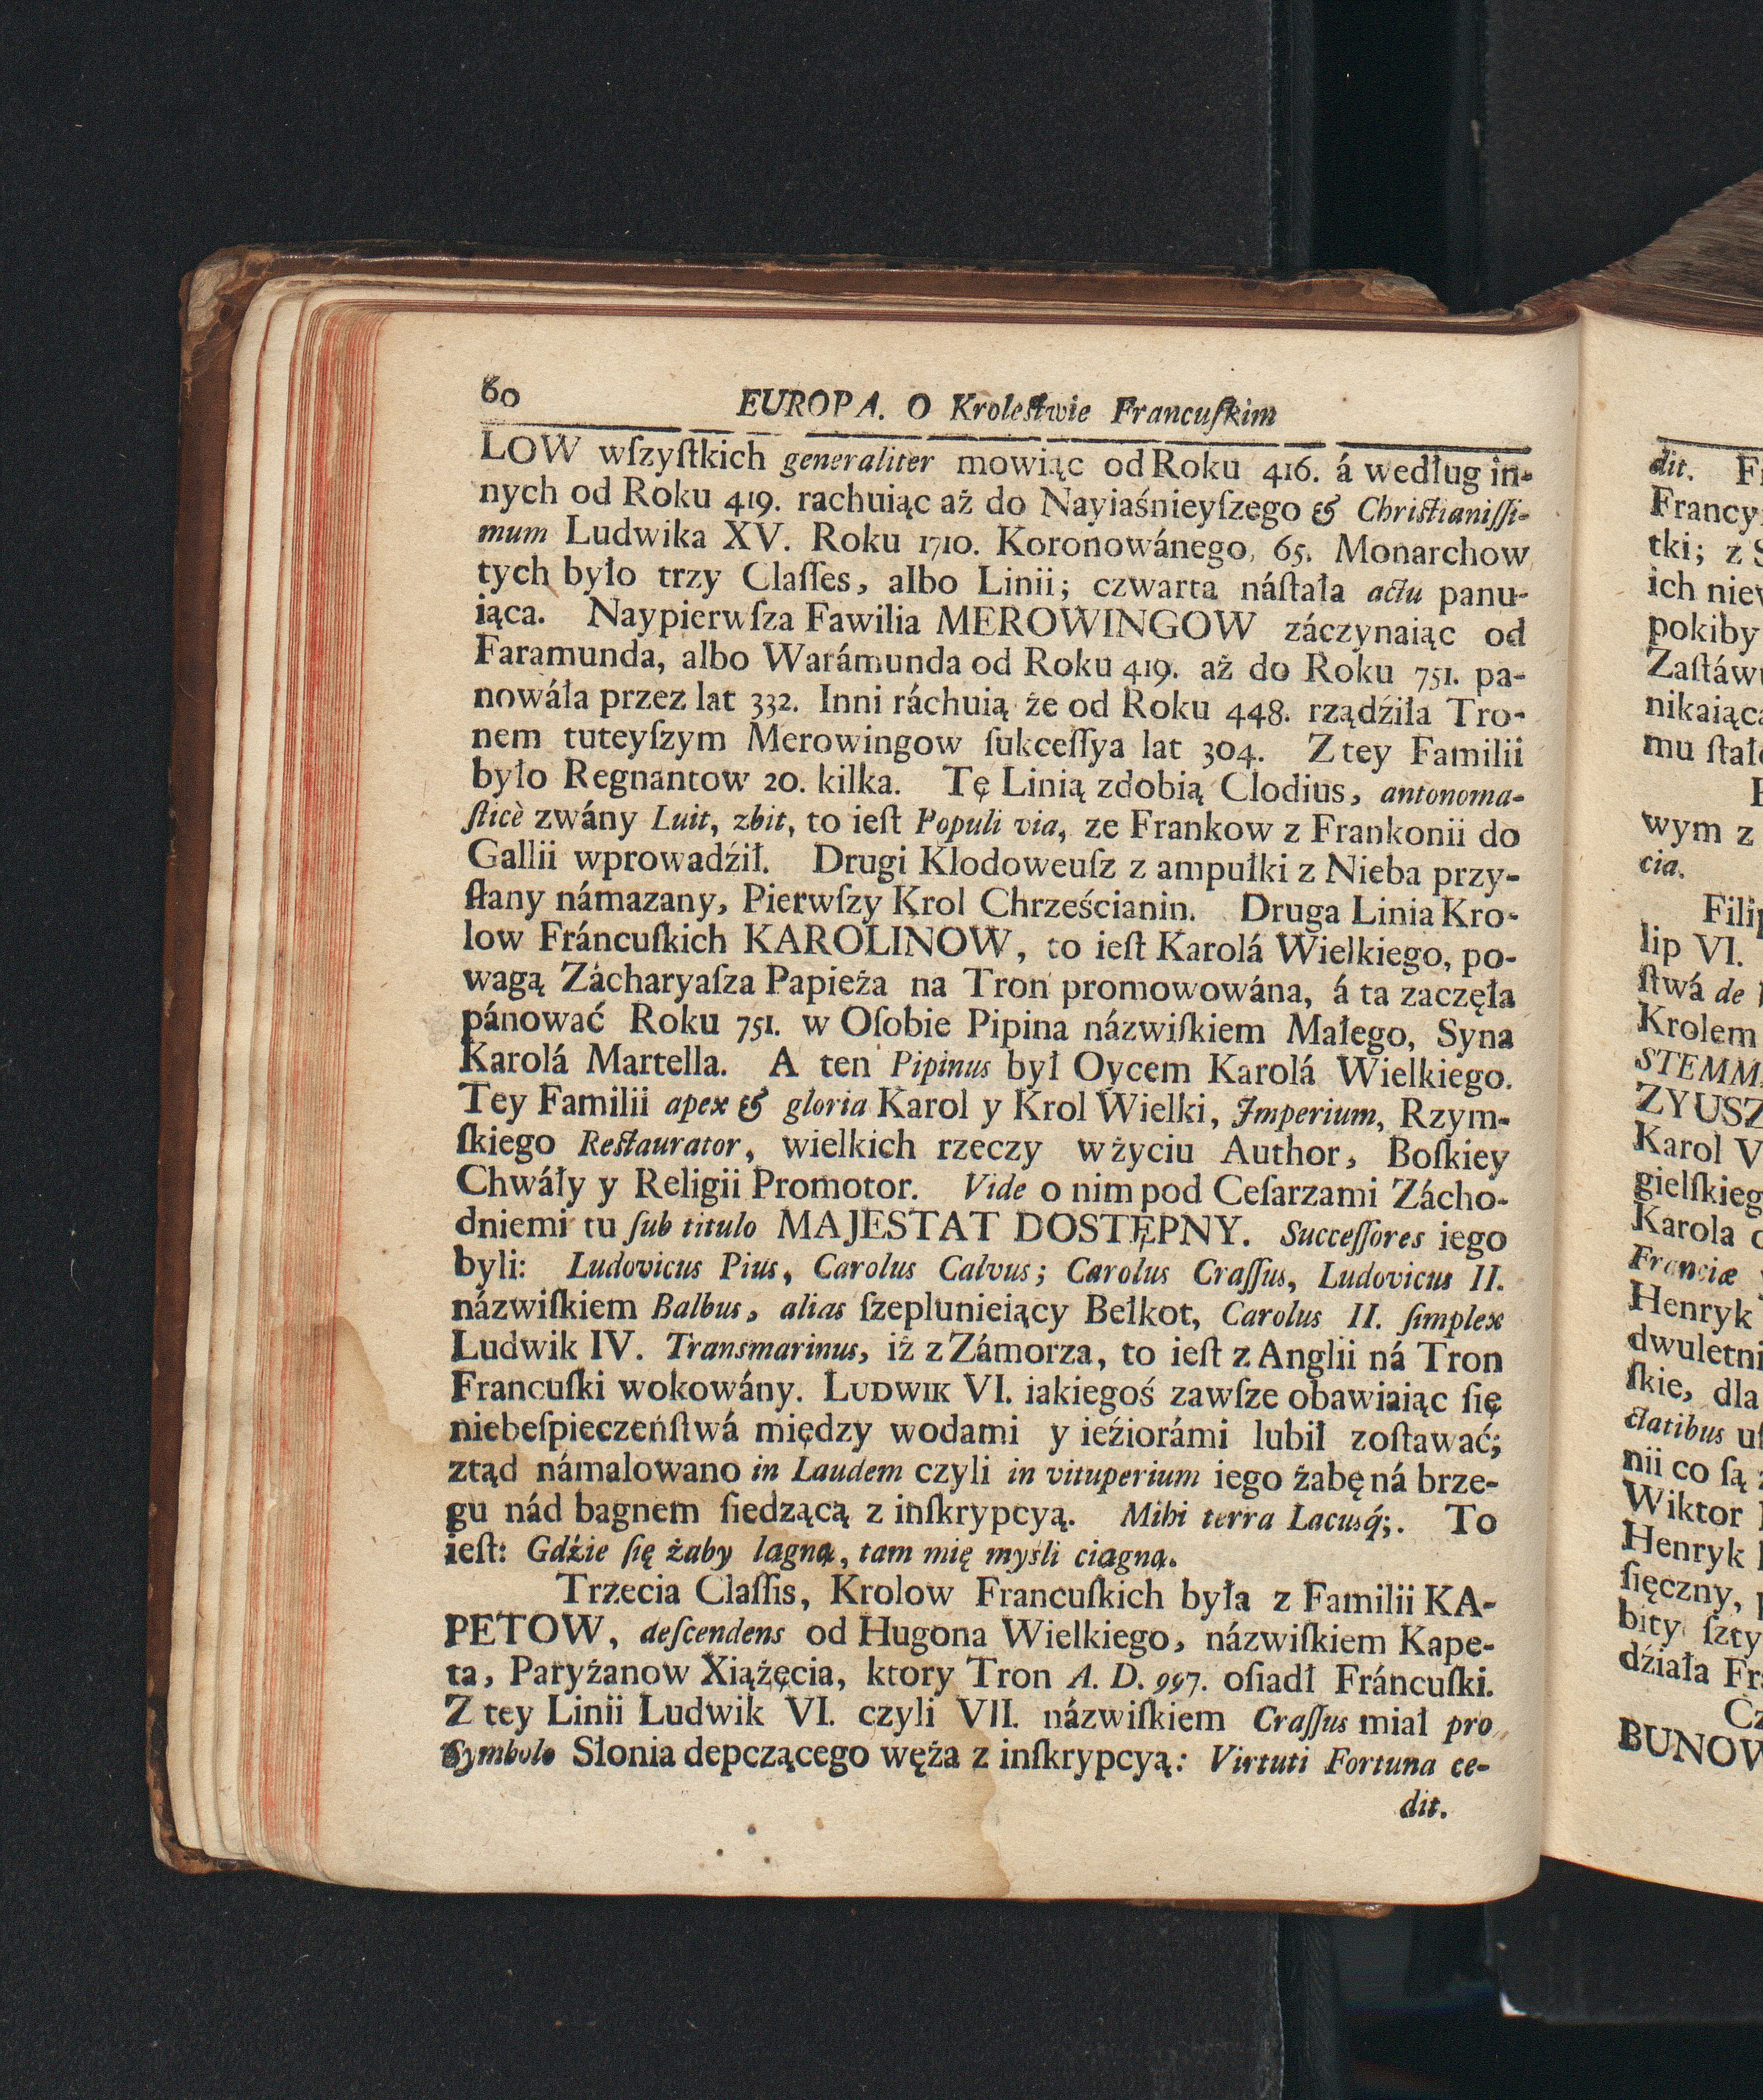 60 EUROPA. O Krolestwie Francuſkim
LOW wſzyſtkich generaliter mowiąc od Roku 416. á według in-
nych od Roku 419. rachuiąc aż do Nayiaśnieyſzego & Chriſtianiſſi-
mum Ludwika XV. Roku 1710. Koronowánego, 65. Monarchow
tych było trzy Claſſes, albo Linii; czwarta náſtała actu panu-
iąca. Naypierwſza Fawilia MEROWINGOW záczynaiąc od
Faramunda, albo Warámunda od Roku 419. aż do Roku 751. pa-
nowáła przez lat 332. Inni ráchuią że od Roku 448. rządźiła Tro-
nem tuteyſzym Merowingow ſukceſſya lat 304. Z tey Familii
było Regnantow 20. kilka. Tę Linią zdobią Clodius, antonoma-
ſticè zwány Luit, zbit, to ieſt Populi via, ze Frankow z Frankonii do
Gallii wprowadźił. Drugi Klodoweuſz z ampułki z Nieba przy-
ſłany námazany, Pierwſzy Krol Chrześcianin. Druga Linia Kro-
low Fráncuſkich KAROLINOW, to ieſt Karolá Wielkiego, po-
wagą Zácharyaſza Papieża na Tron promowowána, á ta zaczęła
pánować Roku 751. w Oſobie Pipina názwiſkiem Małego, Syna
Karolá Martella. A ten Pipinus był Oycem Karolá Wielkiego.
Tey Familii apex & gloria Karol y Krol Wielki, Imperium, Rzym-
ſkiego Reſtaurator, wielkich rzeczy w życiu Author, Boſkiey
Chwáły y Religii Promotor. Vide o nim pod Ceſarzami Zácho-
dniemi tu ſub titulo MAJESTAT DOSTĘPNY. Succeſſores iego
byli: Ludovicus Pius, Carolus Calvus; Carolus Craſſus, Ludovicus II.
názwiſkiem Balbus, alias ſzeplunieiący Bełkot, Carolus II. ſimplex
Ludwik IV. Transmarinus, iż z Zámorza, to ieſt z Anglii ná Tron
Francuſki wokowány. LUDWIK VI. iakiegoś zawſze obawiaiąc ſię
niebeſpieczeńſtwá między wodami y ieźiorámi lubił zoſtawać;
ztąd námalowano in Laudem czyli in vituperium iego żabę ná brze-
gu nád bagnem ſiedzącą z inſkrypcyą. Mihi terra Lacusq́;. To
ieſt: Gdźie ſię żaby lagną, tam mię myśli ciagną.
Trzecia Claſſis, Krolow Francuſkich była z Familii KA-
PETOW, deſcendens od Hugona Wielkiego, názwiſkiem Kape-
ta, Paryżanow Xiążęcia, ktory Tron A. D. 997. oſiadł Fráncuſki.
Z tey Linii Ludwik VI. czyli VII. názwiſkiem Craſſus miał pro
Symbolo Słonia depczącego węża z inſkrypcyą: Virtuti Fortuna ce-
dit.
dit.
Francy
tki; z
ich
pokiby
nikaiąca
mu
wym z
cia.
lip VI.
ſtwá de
Krolem
Karol V
Karola
Franciæ
Henryk
ſkie, dla
nii co ſą
Wiktor
Henryk
ſięczny,
bity
dźiała